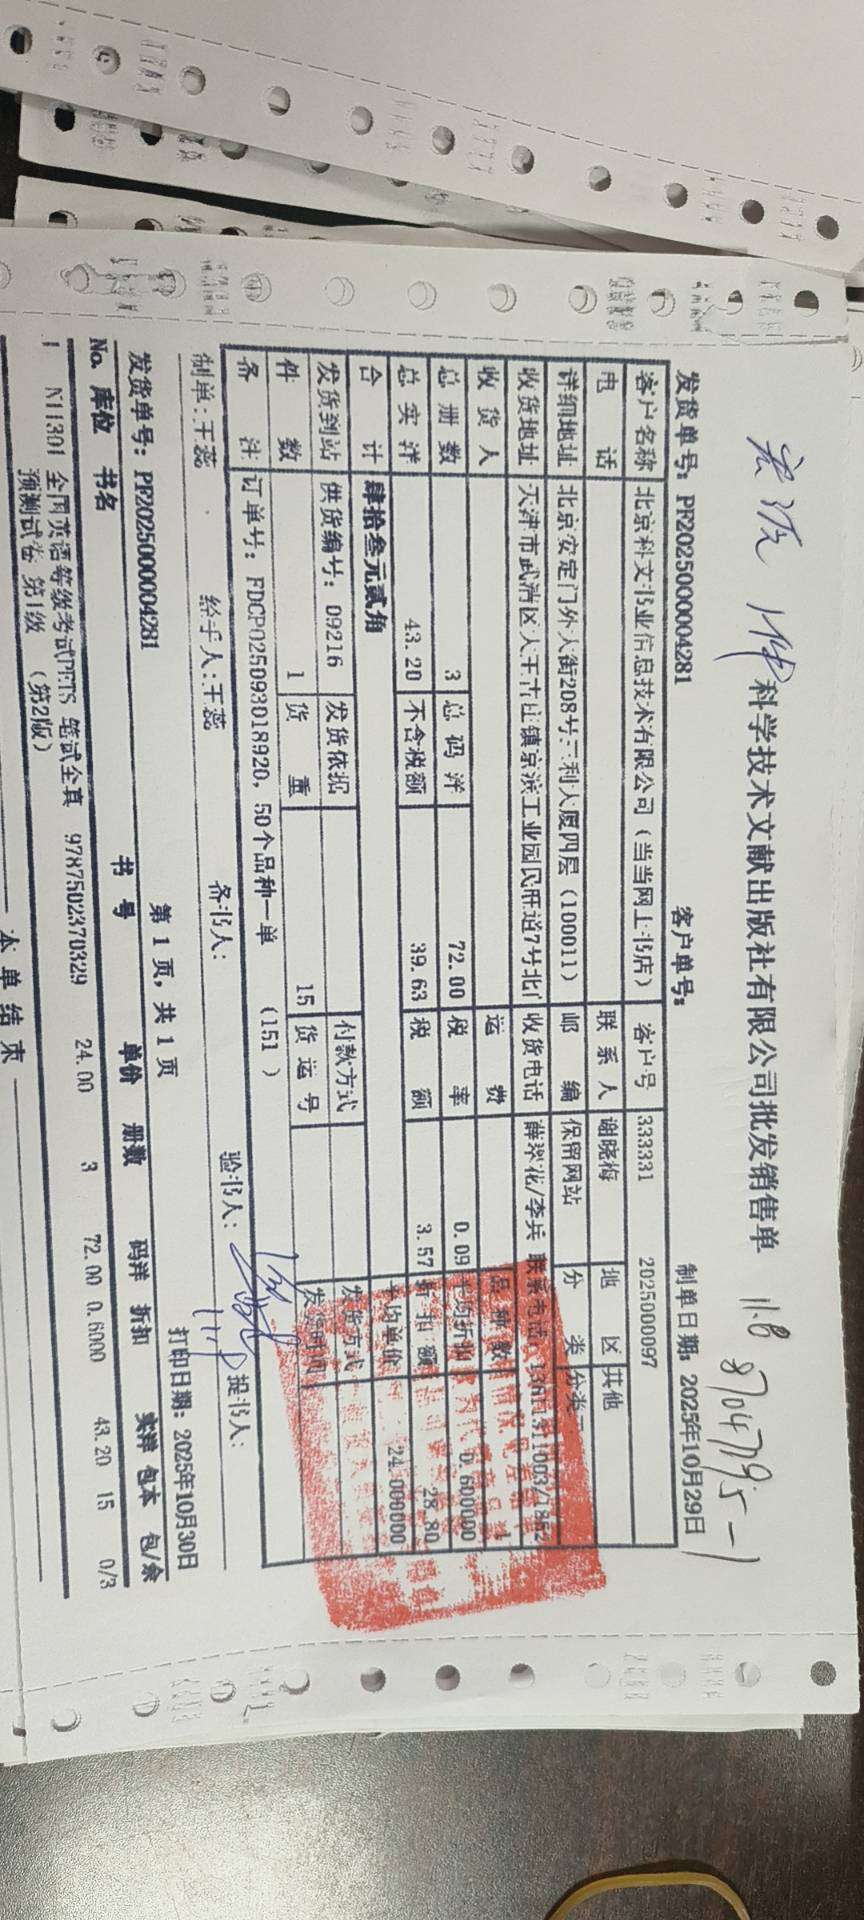 科学技术文献出版社有限公司批发销售单
发货单号: PF2025000004281 客户单号: 制单日期: 2025年10月29日
客户名称 北京科文书业信息技术有限公司(当当网上书店) 客户号 333331 2025000097
电话 联系人 谢晓梅 地区 其他
详细地址 北京安定门外大街208号三利大厦四层(100011) 邮编 保留网站 分类 分类
收货地址 天津市武清区大王古庄镇京滨工业园民旺道7号北门 收货电话 薛翠花/李兵 联系电话
收货人 运费 品种数 1
总册数 3 总码洋 72.00 税率 0.09 平均折扣 0.600000
总实洋 43.20 不含税额 39.63 税额 3.57 折扣额 28.80
合计 肆拾叁元贰角 平均单价 24.000000
发货到站 供货编号: 09216 发货依据 付款方式 发货方式
件数 1 货重 15 货运号 发货时间
备注 订单号: FDCP025093018920, 50个品种一单 (151 )
制单:王蕊 经手人:王蕊 备书人: 验书人: 提书人:
第 1 页, 共 1 页 打印日期: 2025年10月30日
发货单号: PF2025000004281
No. 库位 书名 书号 单价 册数 码洋 折扣 实洋 包本 包/余
1 N11301 全国英语等级考试PETS 笔试全真 9787502370329 24.00 3 72.00 0.6000 43.20 15 0/3
预测试卷 第1级 (第2版)
本单结束